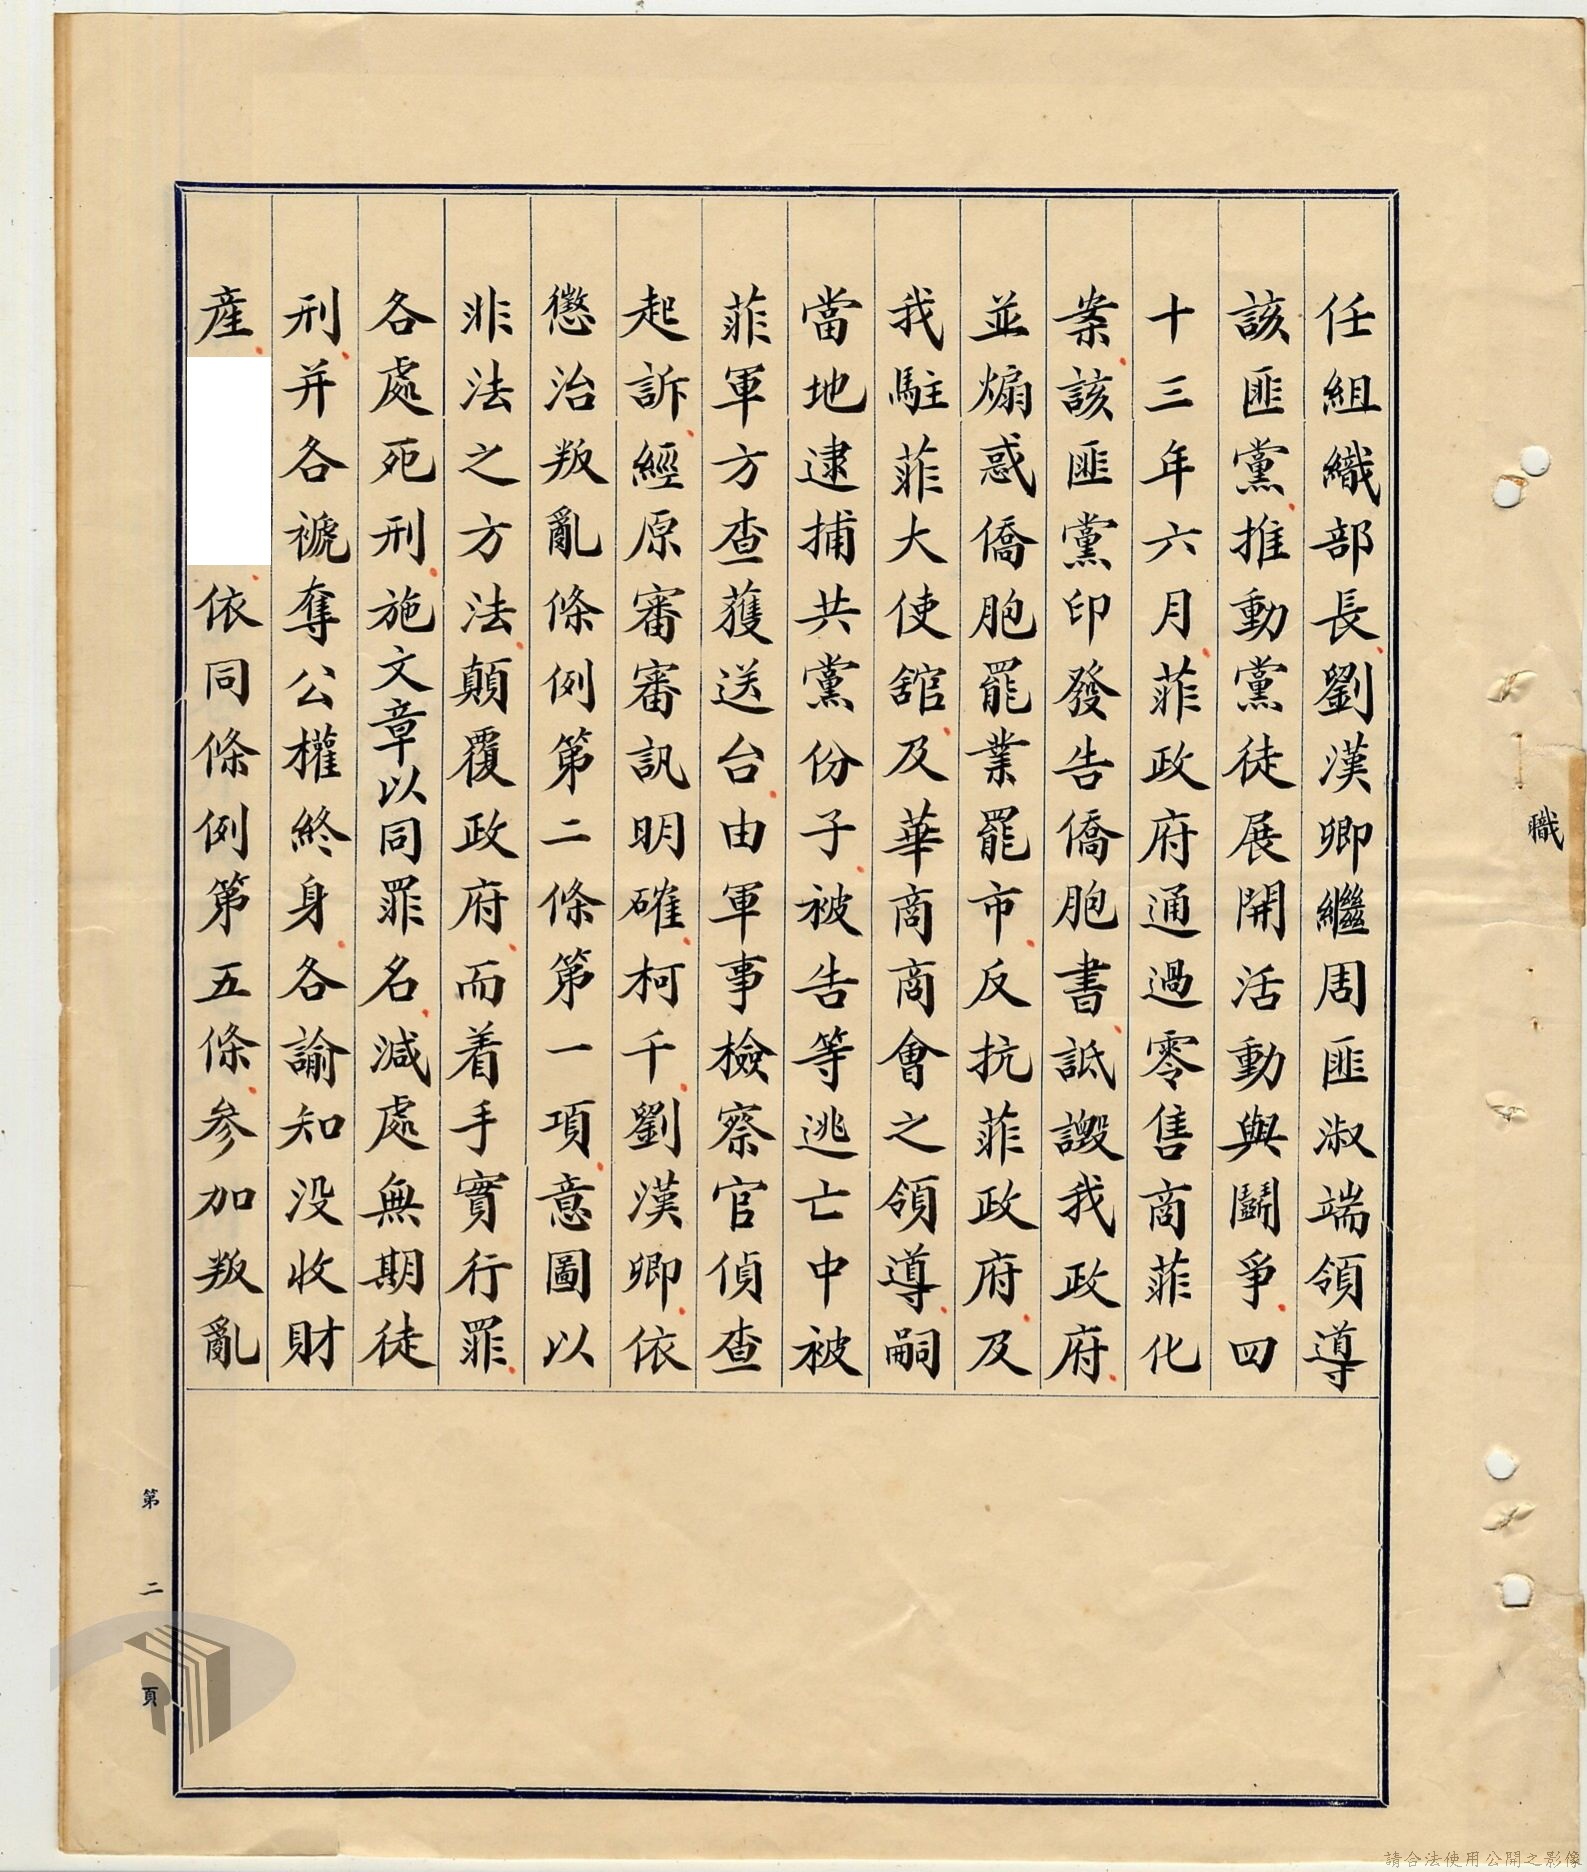 職
任組織部長劉漢卿繼周匪淑端領導
該匪黨推動黨徒展開活動與鬪爭四
十三年六月菲政府通過零售商菲化
案該匪黨印發告僑胞書詆譭我政府
並煽惑僑胞罷業罷市反抗菲政府及
我駐菲大使舘及華商商會之領導嗣
當地逮捕共黨份子被告等逃亡中被
菲軍方查獲送台由軍事檢察官偵查
起訴經原審審訊明確柯千劉漢卿依
懲治叛亂條例第二條第一項意圖以
非法之方法顛覆政府而着手實行罪
各處死刑施文章以同罪名減處無期徒
刑并各褫奪公權終身各諭知没收財
産
依同條例第五條参加叛亂
第二頁
請合法使用公開之影像